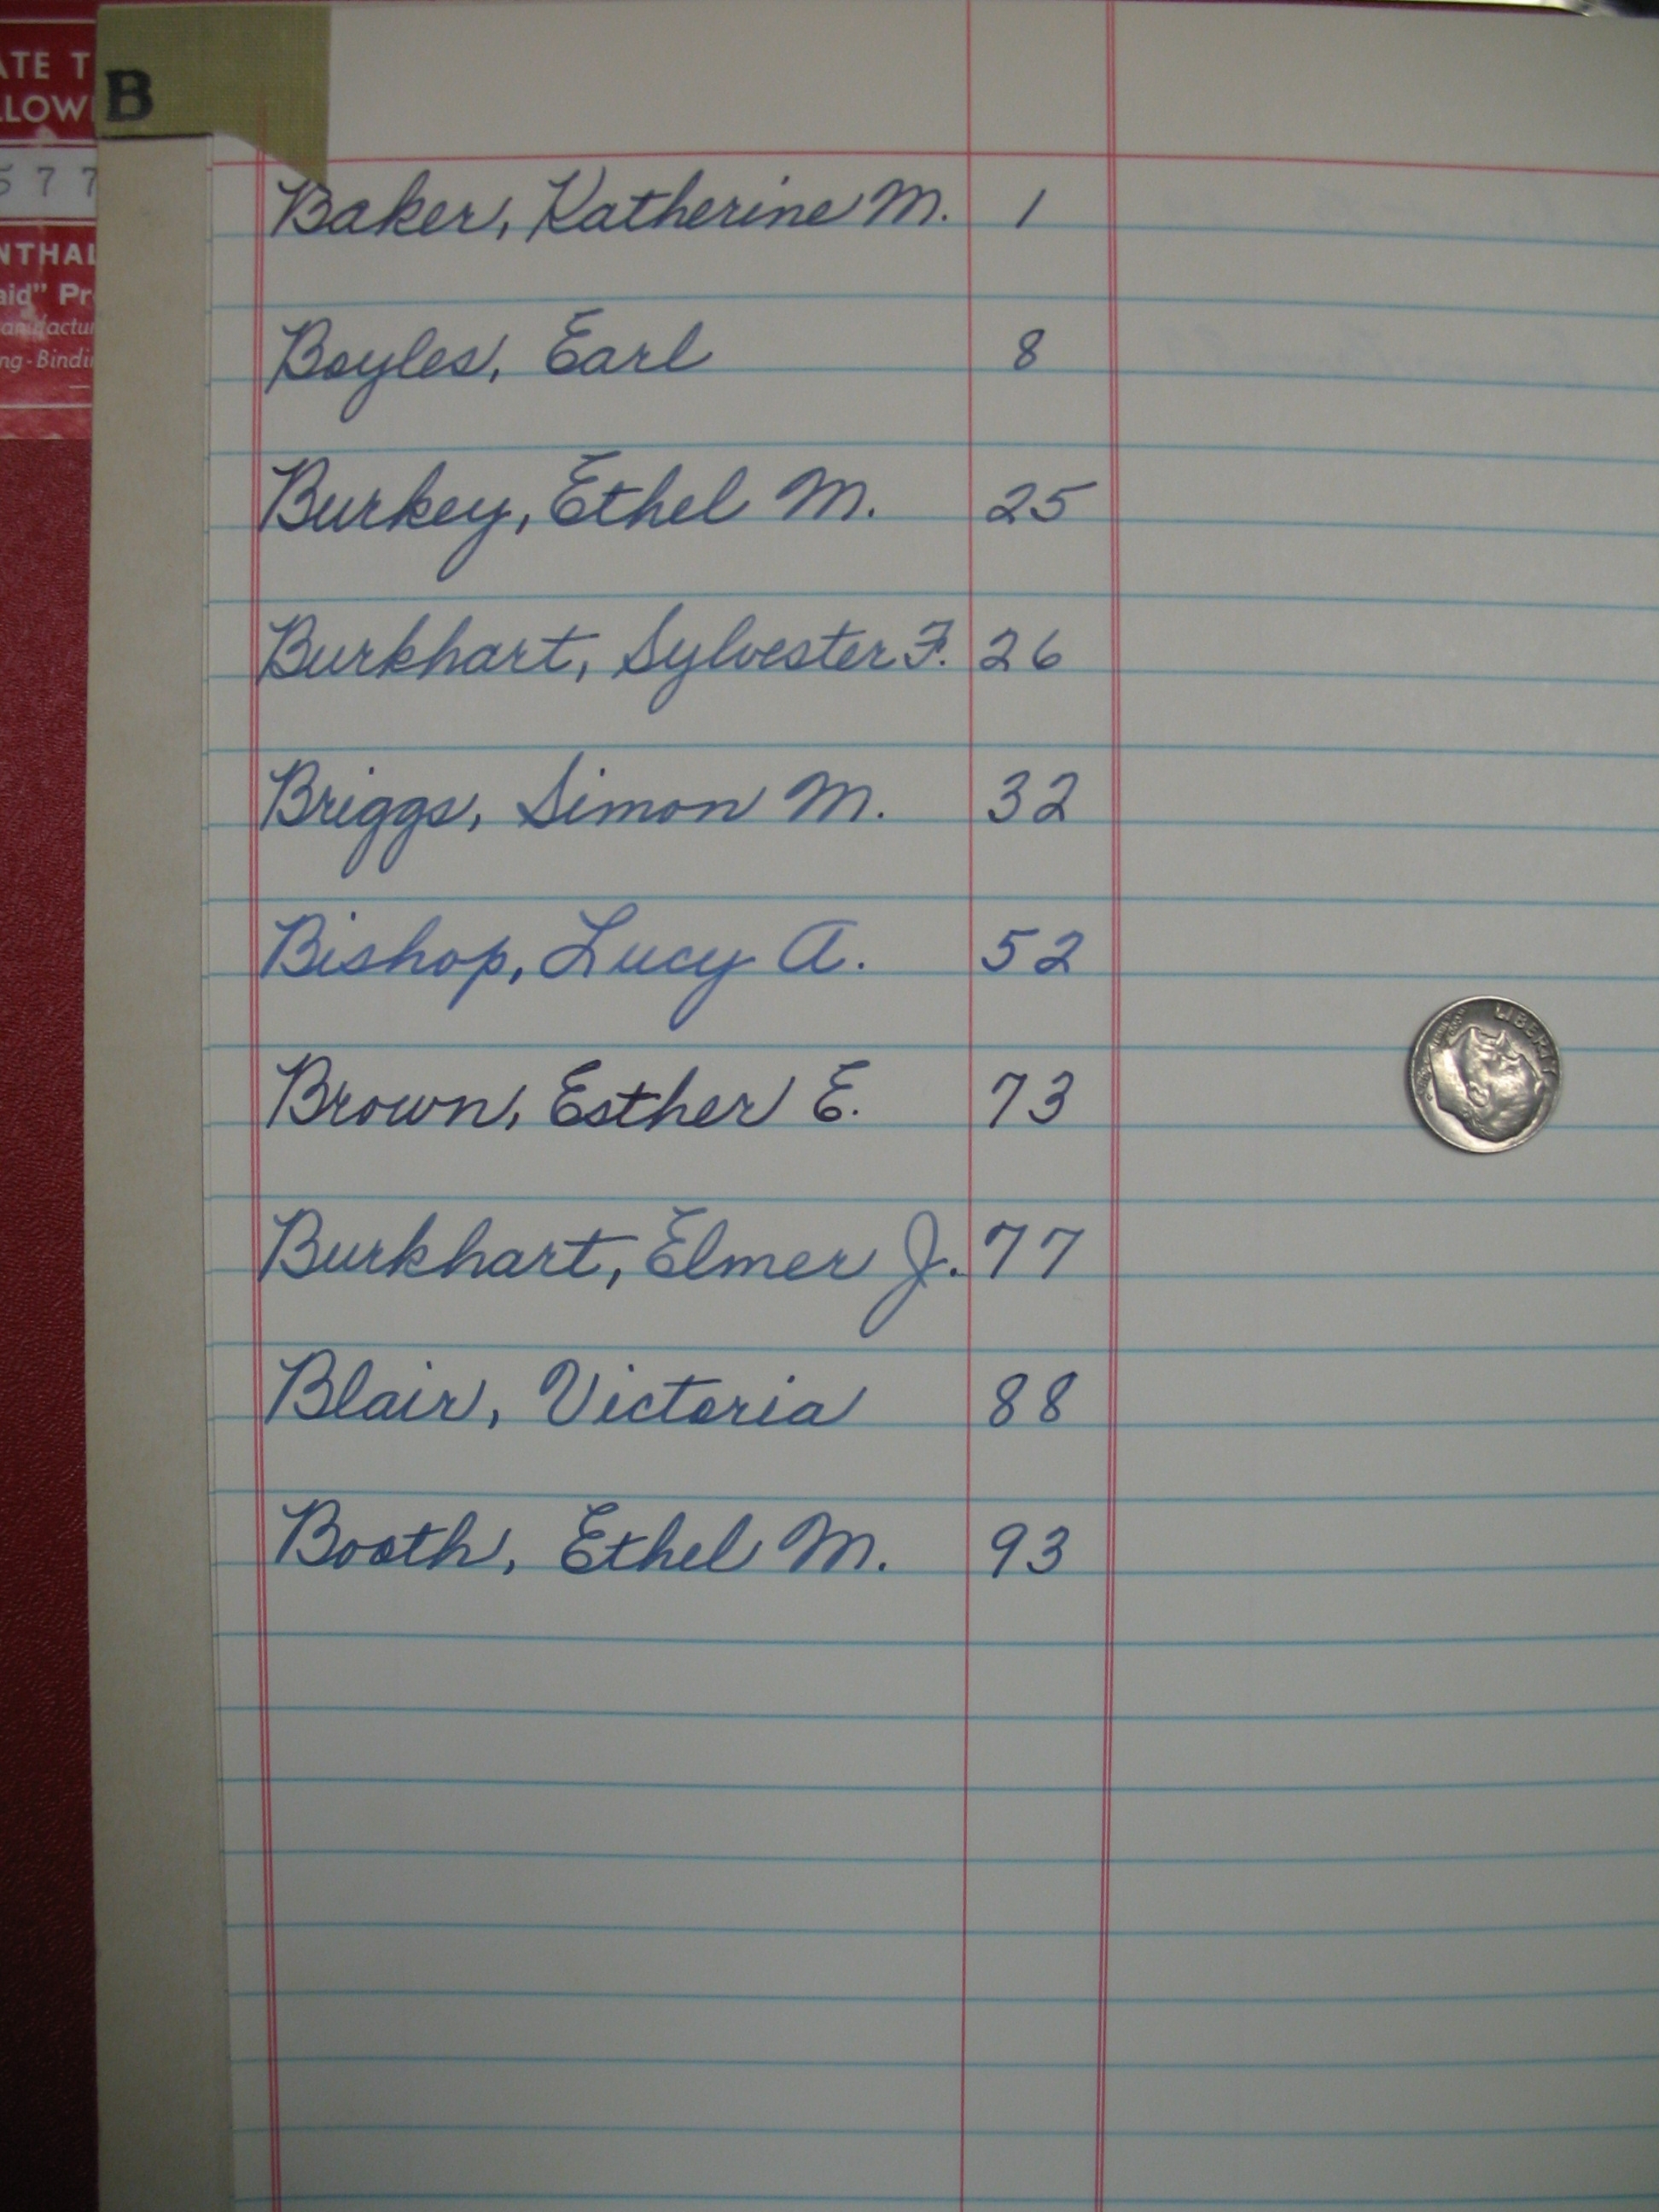 ATE T
LLOW
577
NTHAL
aid" Pr
anufactur
ng-Bindi
B
Baker, Katherine M. 1
Boyles, Earl 8
Burkey, Ethel M. 25
Burkhart, Sylvester F. 26
Briggs, Simon M. 32
Bishop, Lucy A. 52
Brown, Esther E. 73
Burkhart, Elmer J. 77
Blair, Victoria 88
Booth, Ethel M. 93
LIBERTY